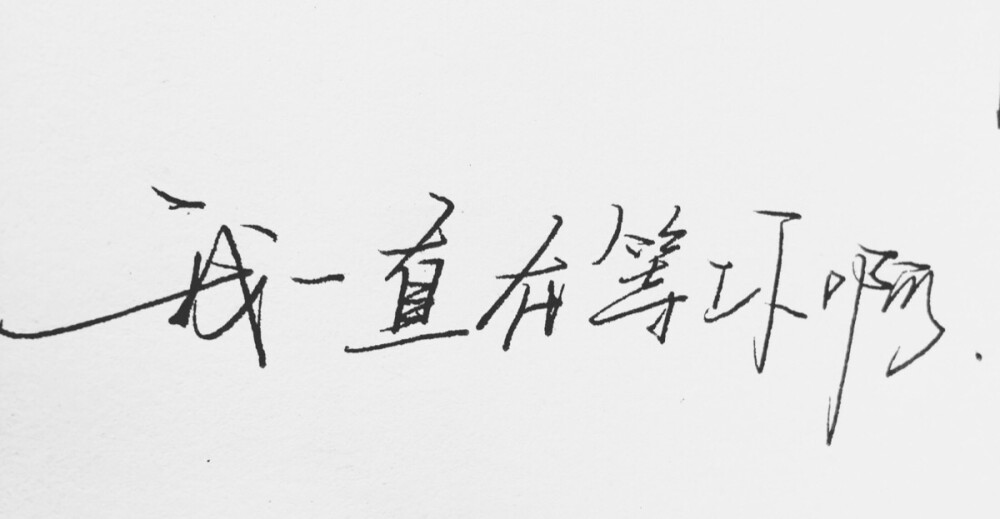 我一直在等坏啊.